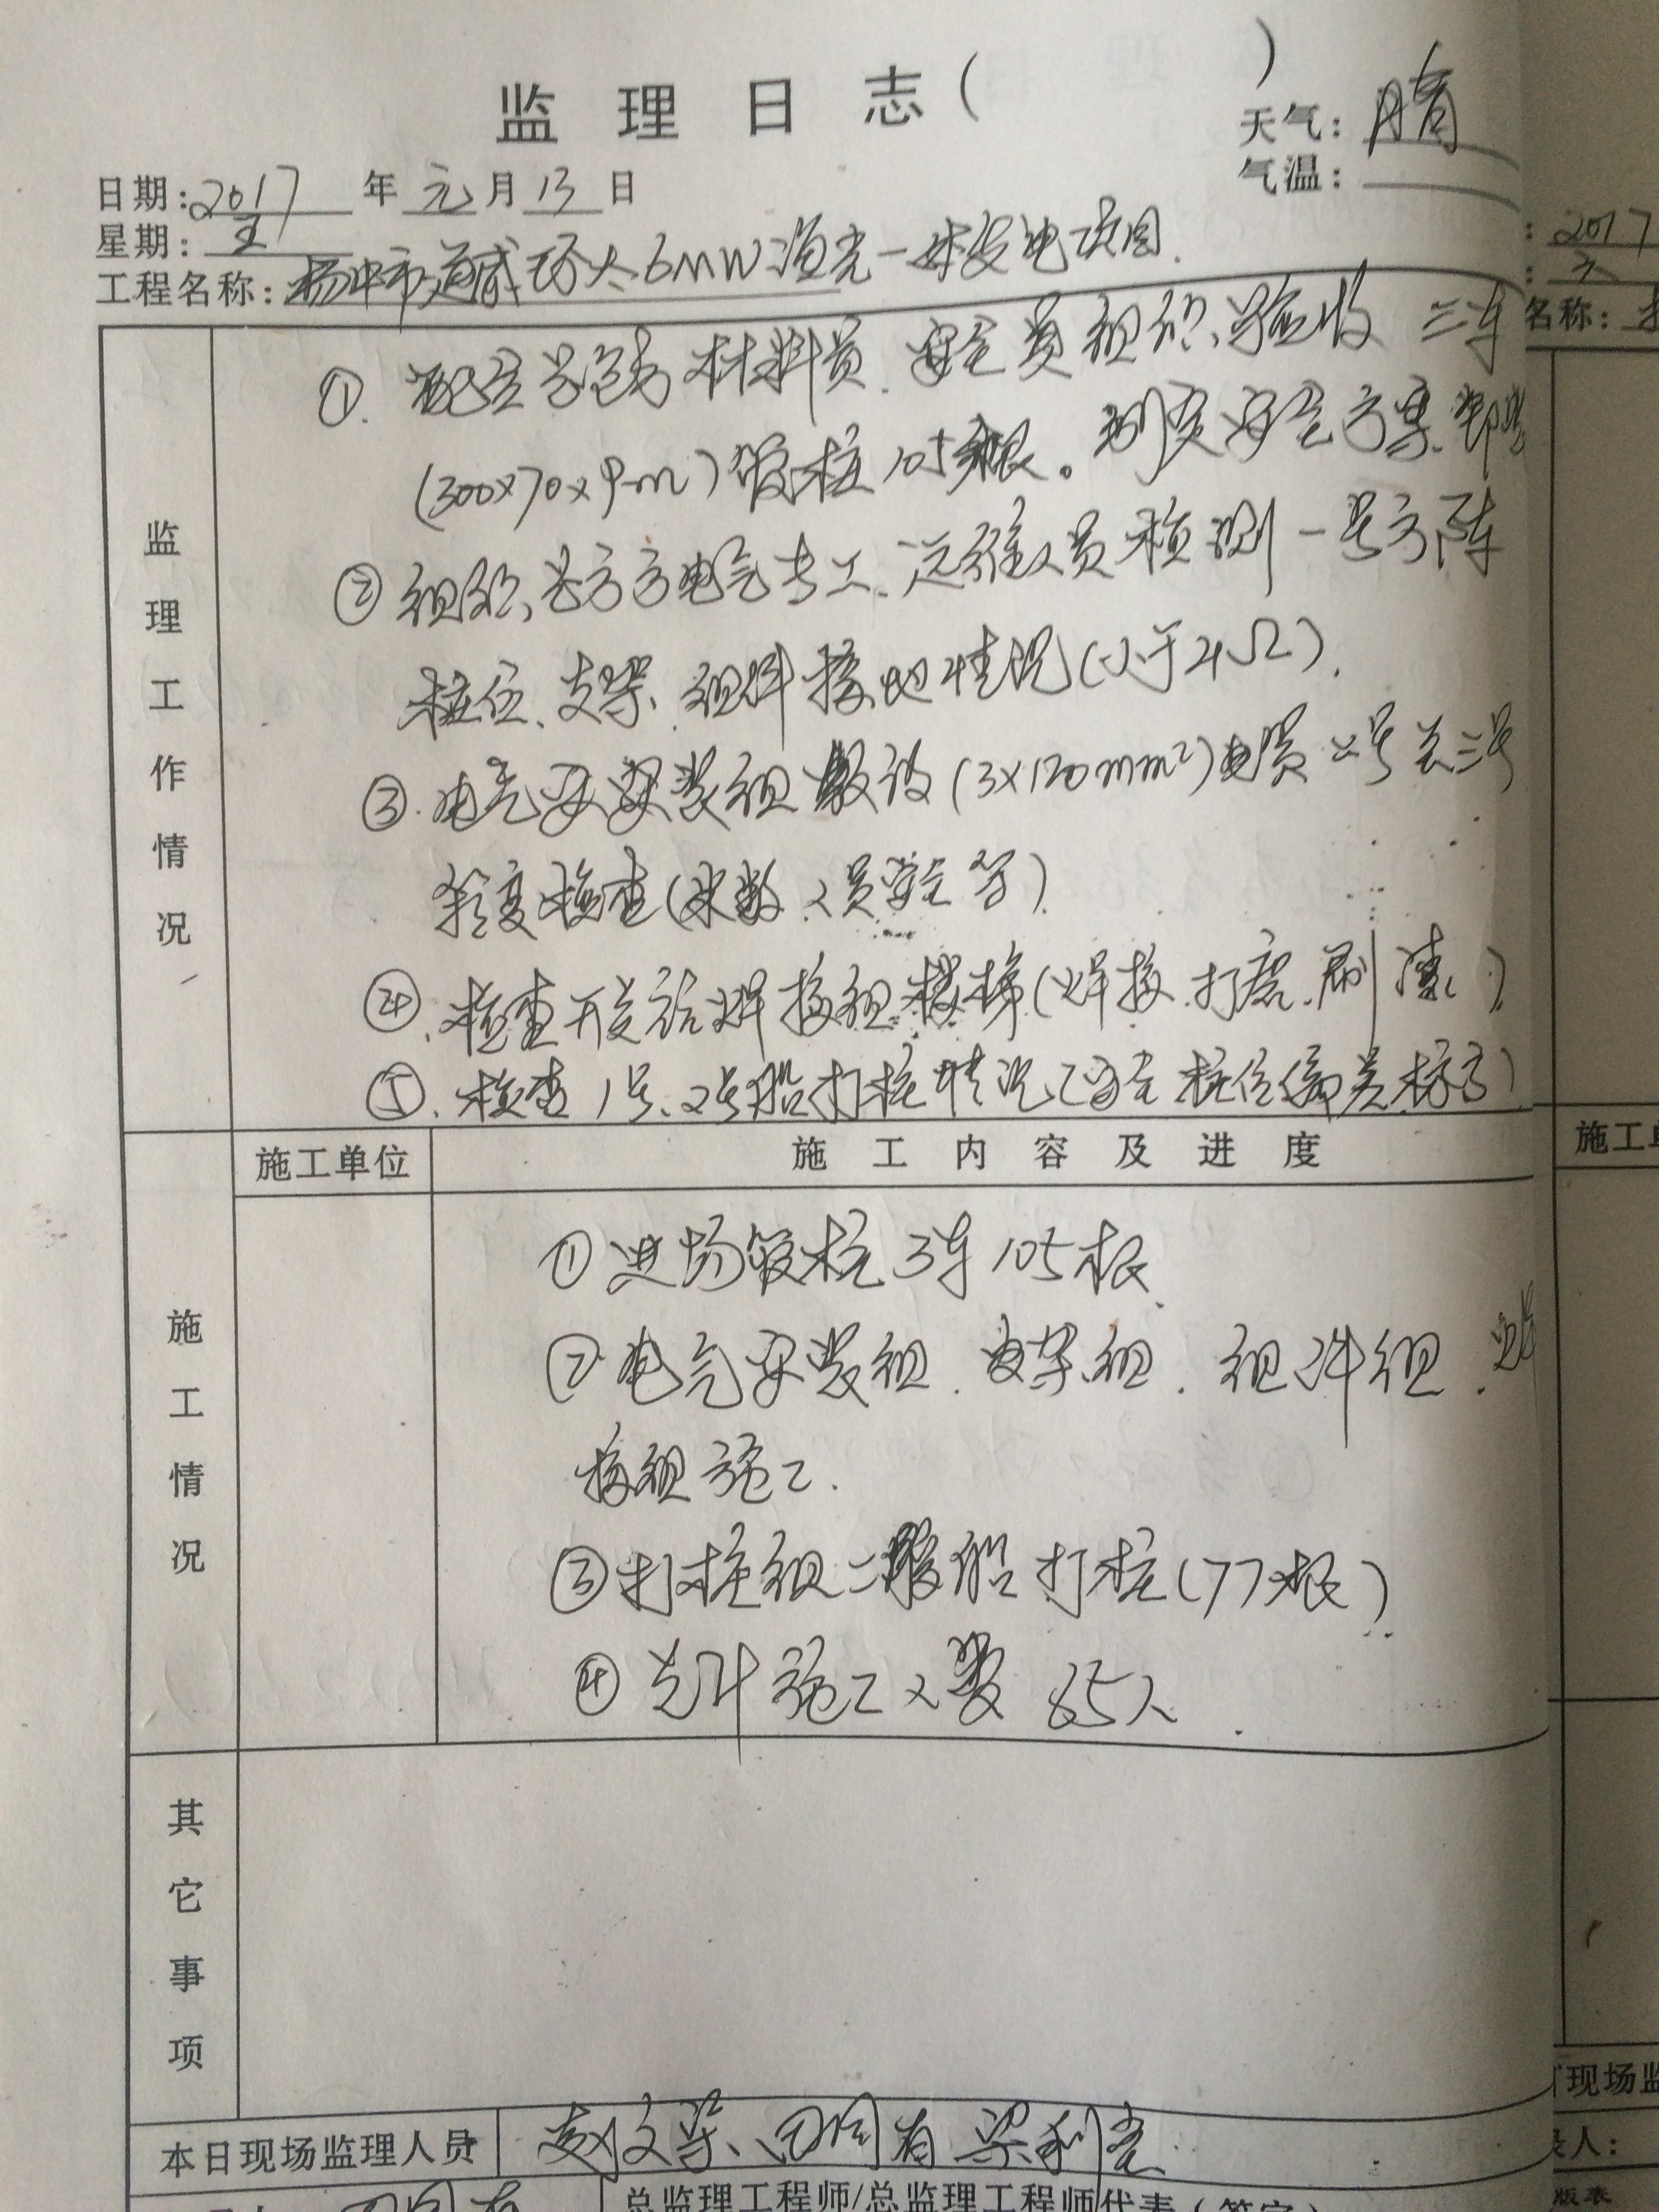 监理日志（ ）
天气：晴
气温：
日期：2017年元月13日
星期：五
工程名称：扬中市通威 6MW渔光一体发电项目.
监理工作情况
①. 配合总包方材料员.安全员组织、验收 三车
(300×70×9m)管桩105根。制度安全方案
②组织、总方方电气专工.运维人员检测一号方阵
桩位、支架、组件接地情况(小于4Ω).
③.电气安装组敷设(3×120mm²)电 二号 三号
箱变检查(米数.人员安全等)
④.检查 焊接组楼梯(焊接.打磨.刷漆.)
⑤.检查1号、2号船打桩情况( 桩位偏差标高)
施工单位
施工内容及进度
施工情况
①进场管桩3车105根.
②电气安装组.支架组.组件组.焊
接组施工.
③打桩组二艘船打桩(77根)
④总计施工人数 85人.
其它事项
本日现场监理人员 田同有 梁利
总监理工程师/总监理工程师代表（签字）
2017
名称：
施工单
现场监
录人：
版表